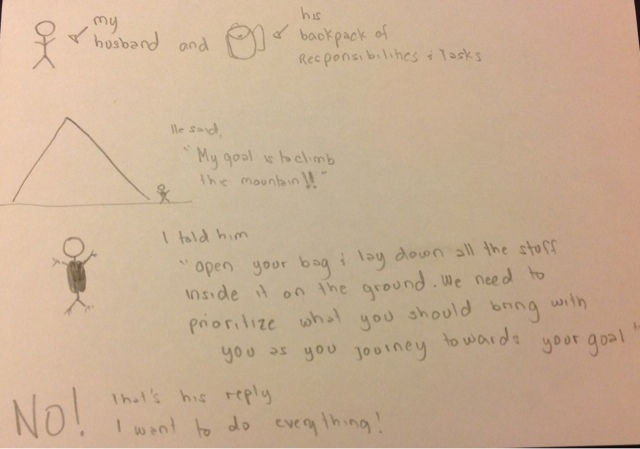 my
husband and
his
backpack of
Responsibilities & tasks
He said,
"My goal is to climb
the mountain!!"
I told him
"open your bag & lay down all the stuff
inside it on the ground. We need to
prioritize what you should bring with
you as you journey towards your goal"
NO! That's his reply
I want to do everything!